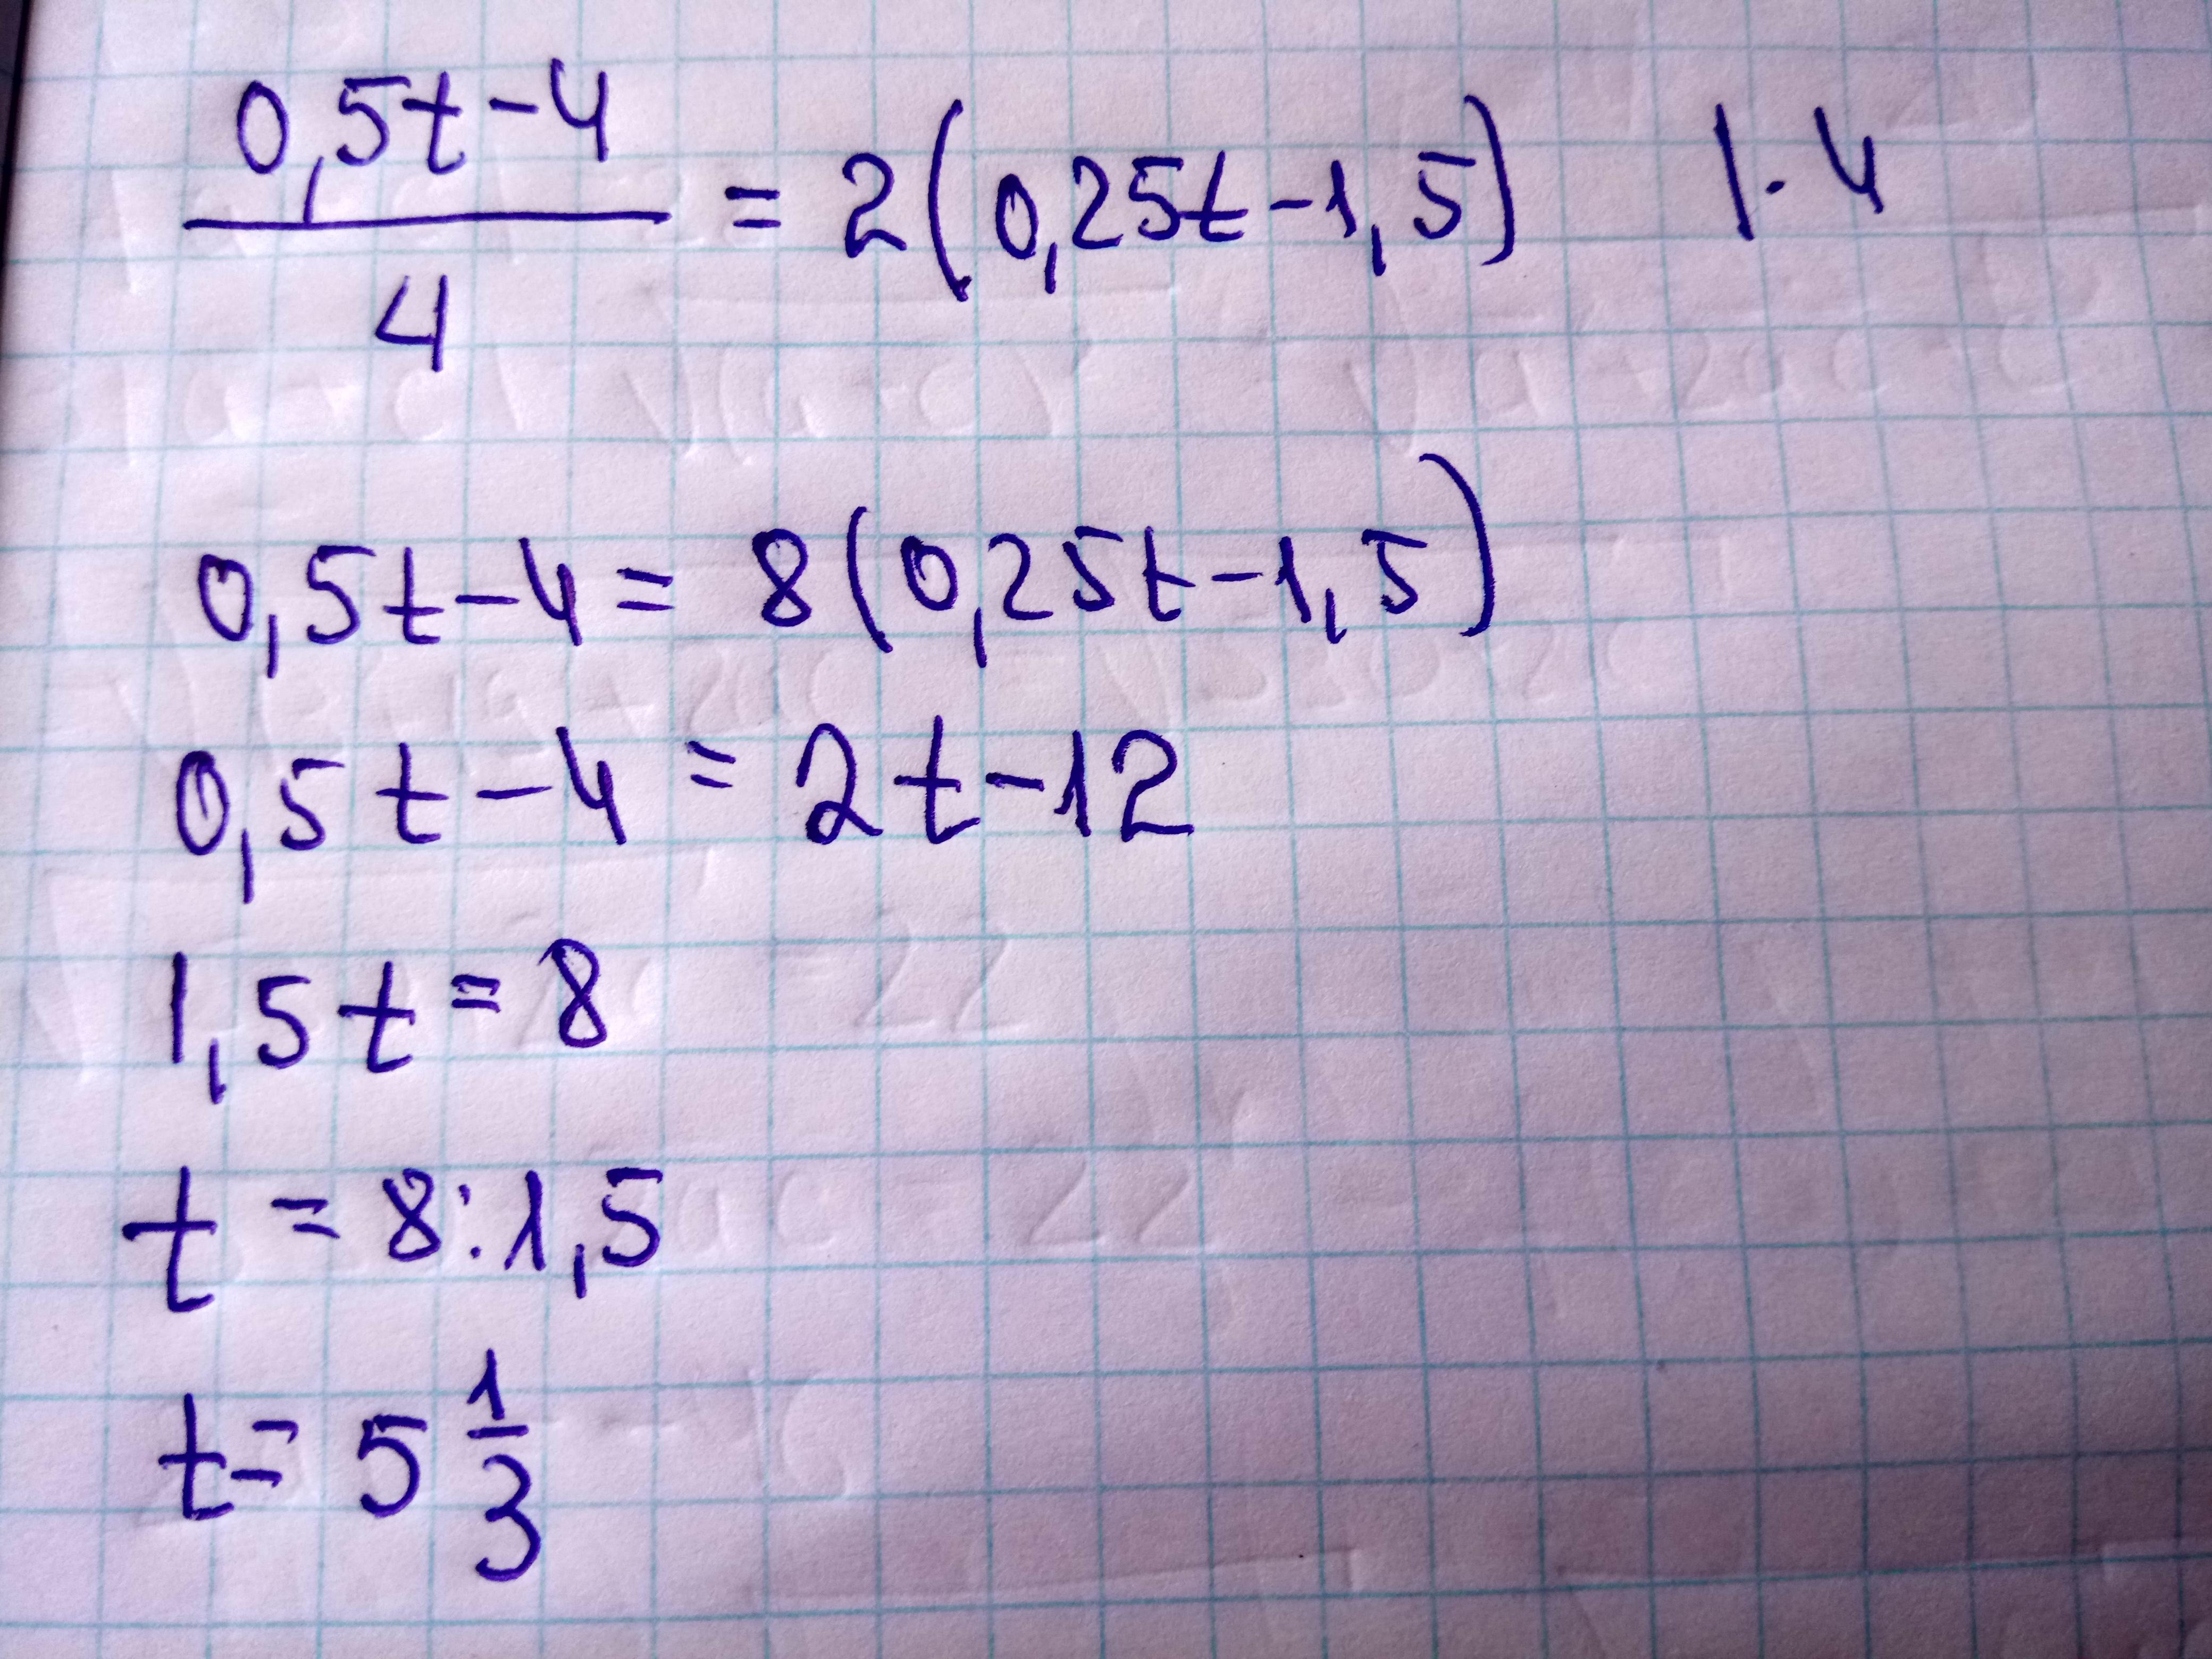 0,5t-4/4 = 2(0,25t-1,5) |·4
0,5t-4= 8(0,25t-1,5)
0,5t-4 = 2t-12
1,5t=8
t = 8:1,5
t= 5 1/3